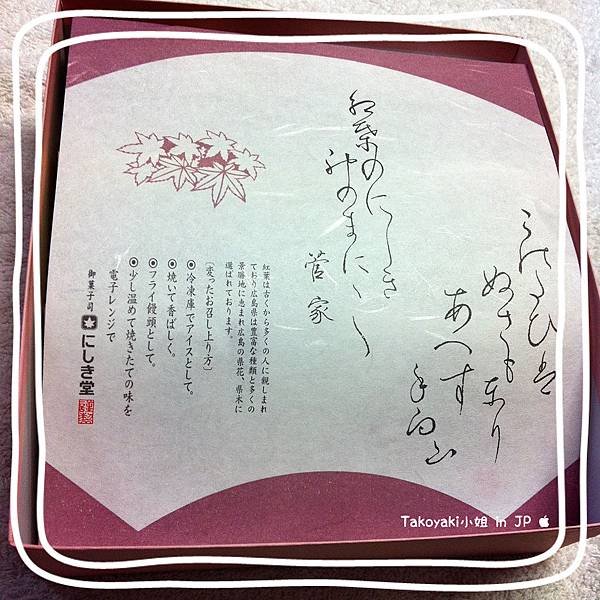 このたびは
ぬさもとり
あへす
手向山
紅葉のにしき
神のまに〱
菅家
紅葉は古くから多くの人に親しまれ
ており広島県は豊富な種類と多くの
景勝地に恵まれ広島の県花、県木に
選ばれております。
〔変ったお召し上り方〕
◉冷凍庫でアイスとして。
◉焼いて香ばしく。
◉フライ饅頭として。
◉少し温めて焼きたての味を
電子レンジで
御菓子司 にしき堂
Takoyaki小姐 in JP